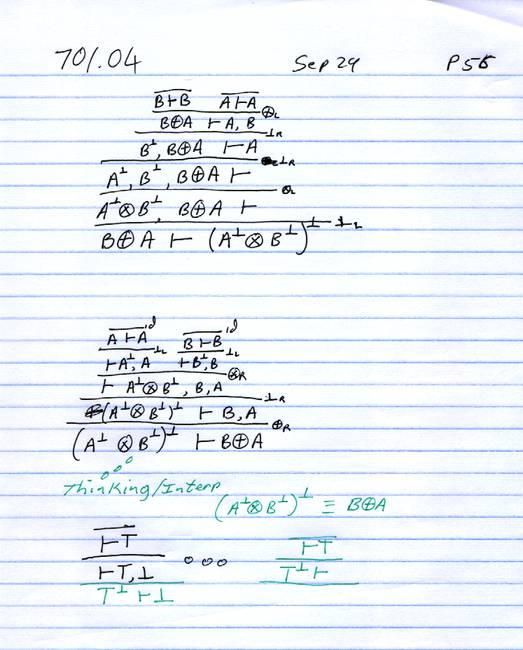 701.04 Sep 29 P 5
B⊢B A⊢A
B⊕A ⊢ A, B ⊕L
B⊥, B⊕A ⊢ A ⊥R
A⊥, B⊥, B⊕A ⊢ ⊥R
A⊥⊗B⊥, B⊕A ⊢ ⊗L
B⊕A ⊢ (A⊥⊗B⊥)⊥ ⊥L
A⊢A id B⊢B id
⊢A⊥, A ⊥L ⊢B⊥, B ⊥L
⊢ A⊥⊗B⊥, B, A ⊗R
(A⊥⊗B⊥)⊥ ⊢ B, A ⊥R
(A⊥⊗B⊥)⊥ ⊢ B⊕A ⊕R
Thinking/Interp
(A⊥⊗B⊥)⊥ ≡ B⊕A
⊢T ⊢T
⊢T, ⊥ ooo T⊥⊢
T⊥⊢⊥